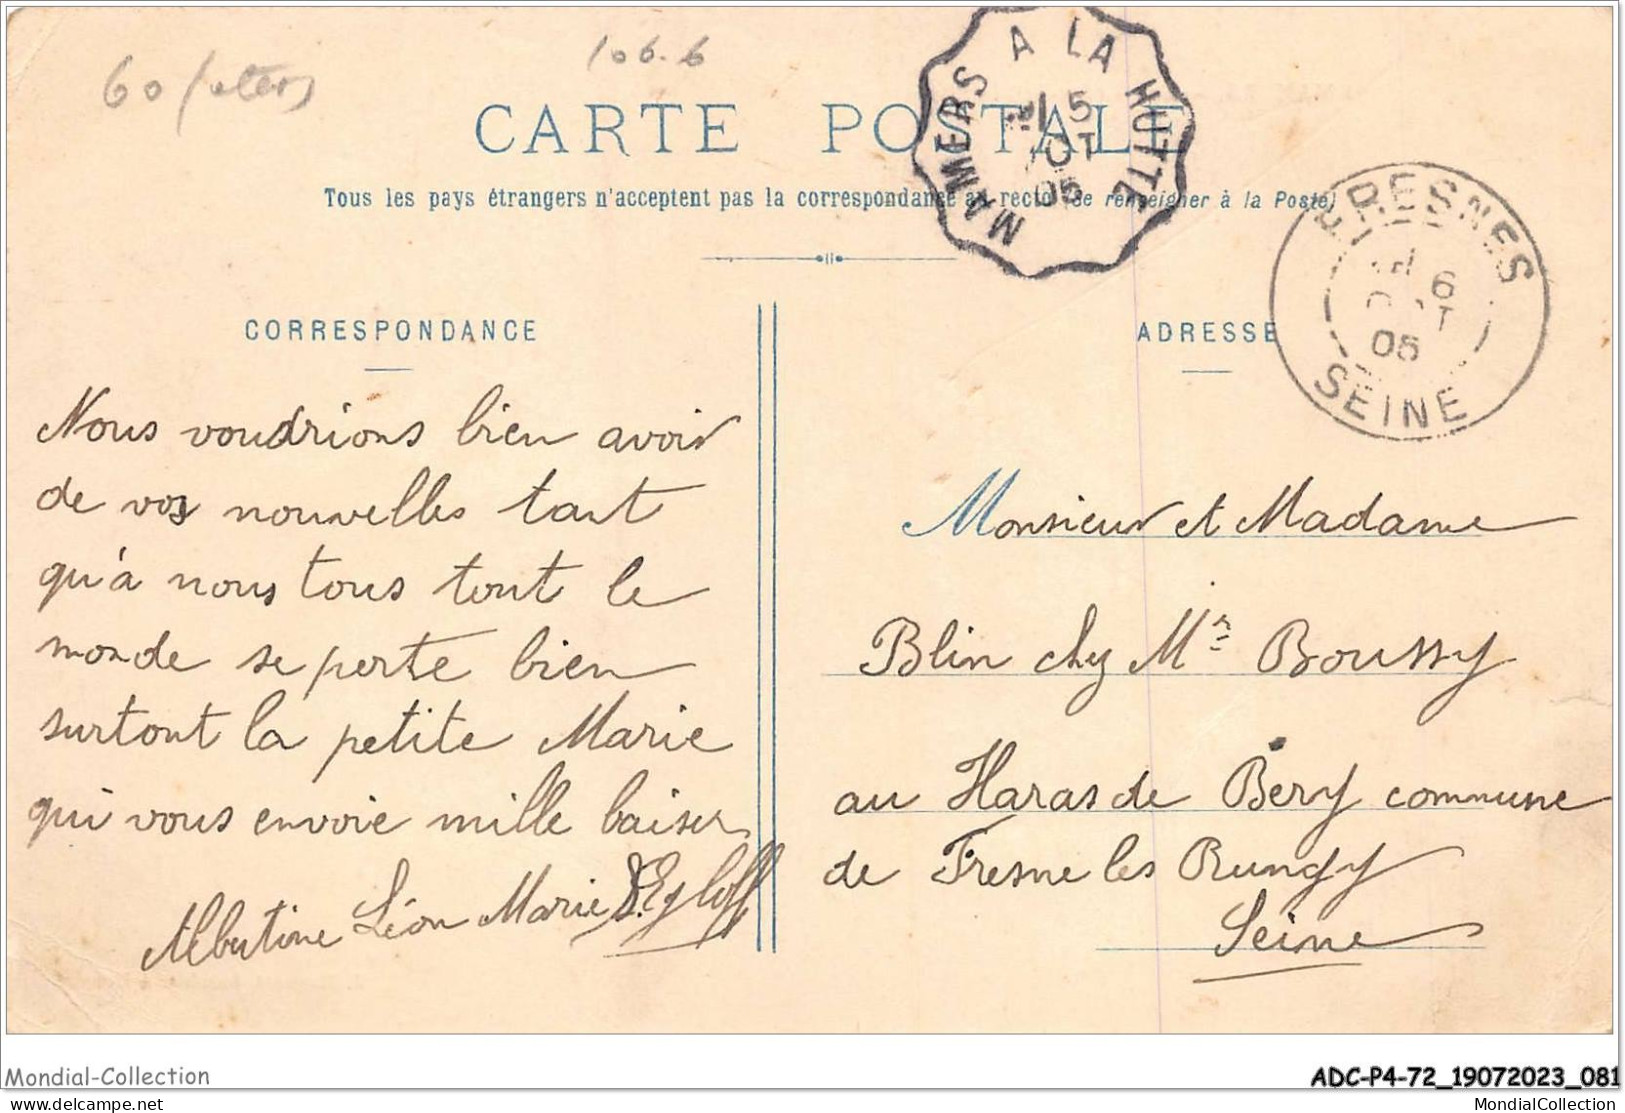 106.6
60
CARTE POSTALE
Tous les pays étrangers n'acceptent pas la correspondance au recto (se renseigner à la Poste)
MAMERS A LA HUTTE
5
OCT
05
FRESNES
6
05
SEINE
CORRESPONDANCE
Nous voudrions bien avoir
de vos nouvelles tant
qu'à nous tous tout le
monde se porte bien
surtout la petite Marie
qui vous envoie mille baiser
Albertine Léon Marie Egloff
ADRESSE
Monsieur et Madame
Blin chez Mr Boussy
au Haras de Bérny commune
de Fresne les Rungy
Seine
Mondial-Collection
ADC-P4-72_19072023_081
delcampe.net
MondialCollection